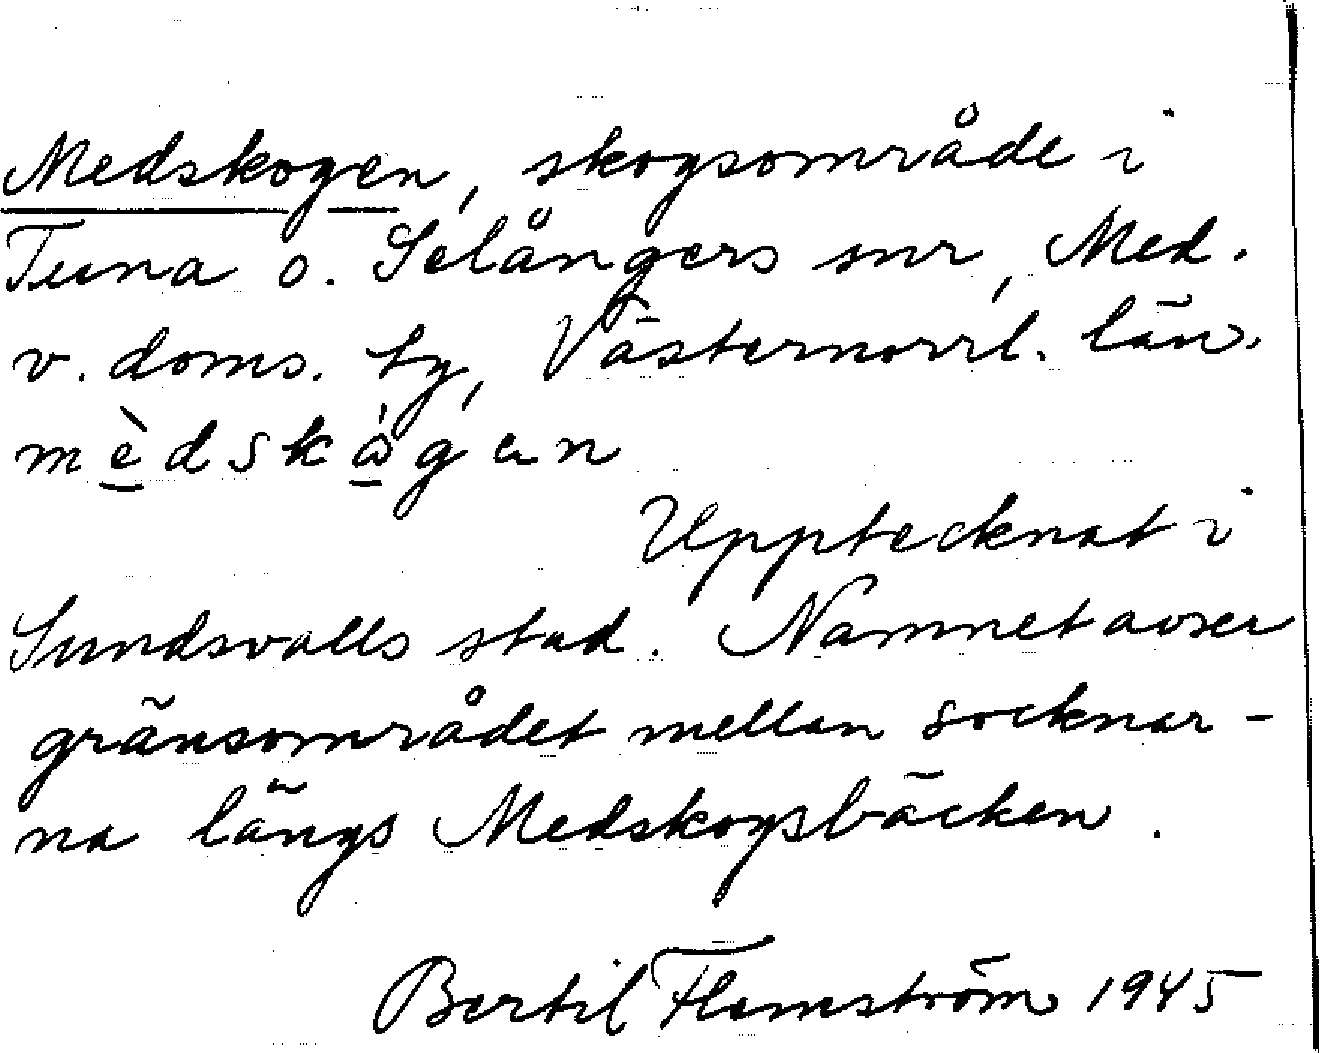 Medskogen, skogsområde i
Tuna o. Selångers snr, Med.
v. doms. tg, Västernorrl. län.
mèdskògen
Upptecknat i
Sundsvalls stad. Namnet avser
gränsområdet mellan socknar-
na längs Medskogsbäcken.
Bertil Flemström 1945